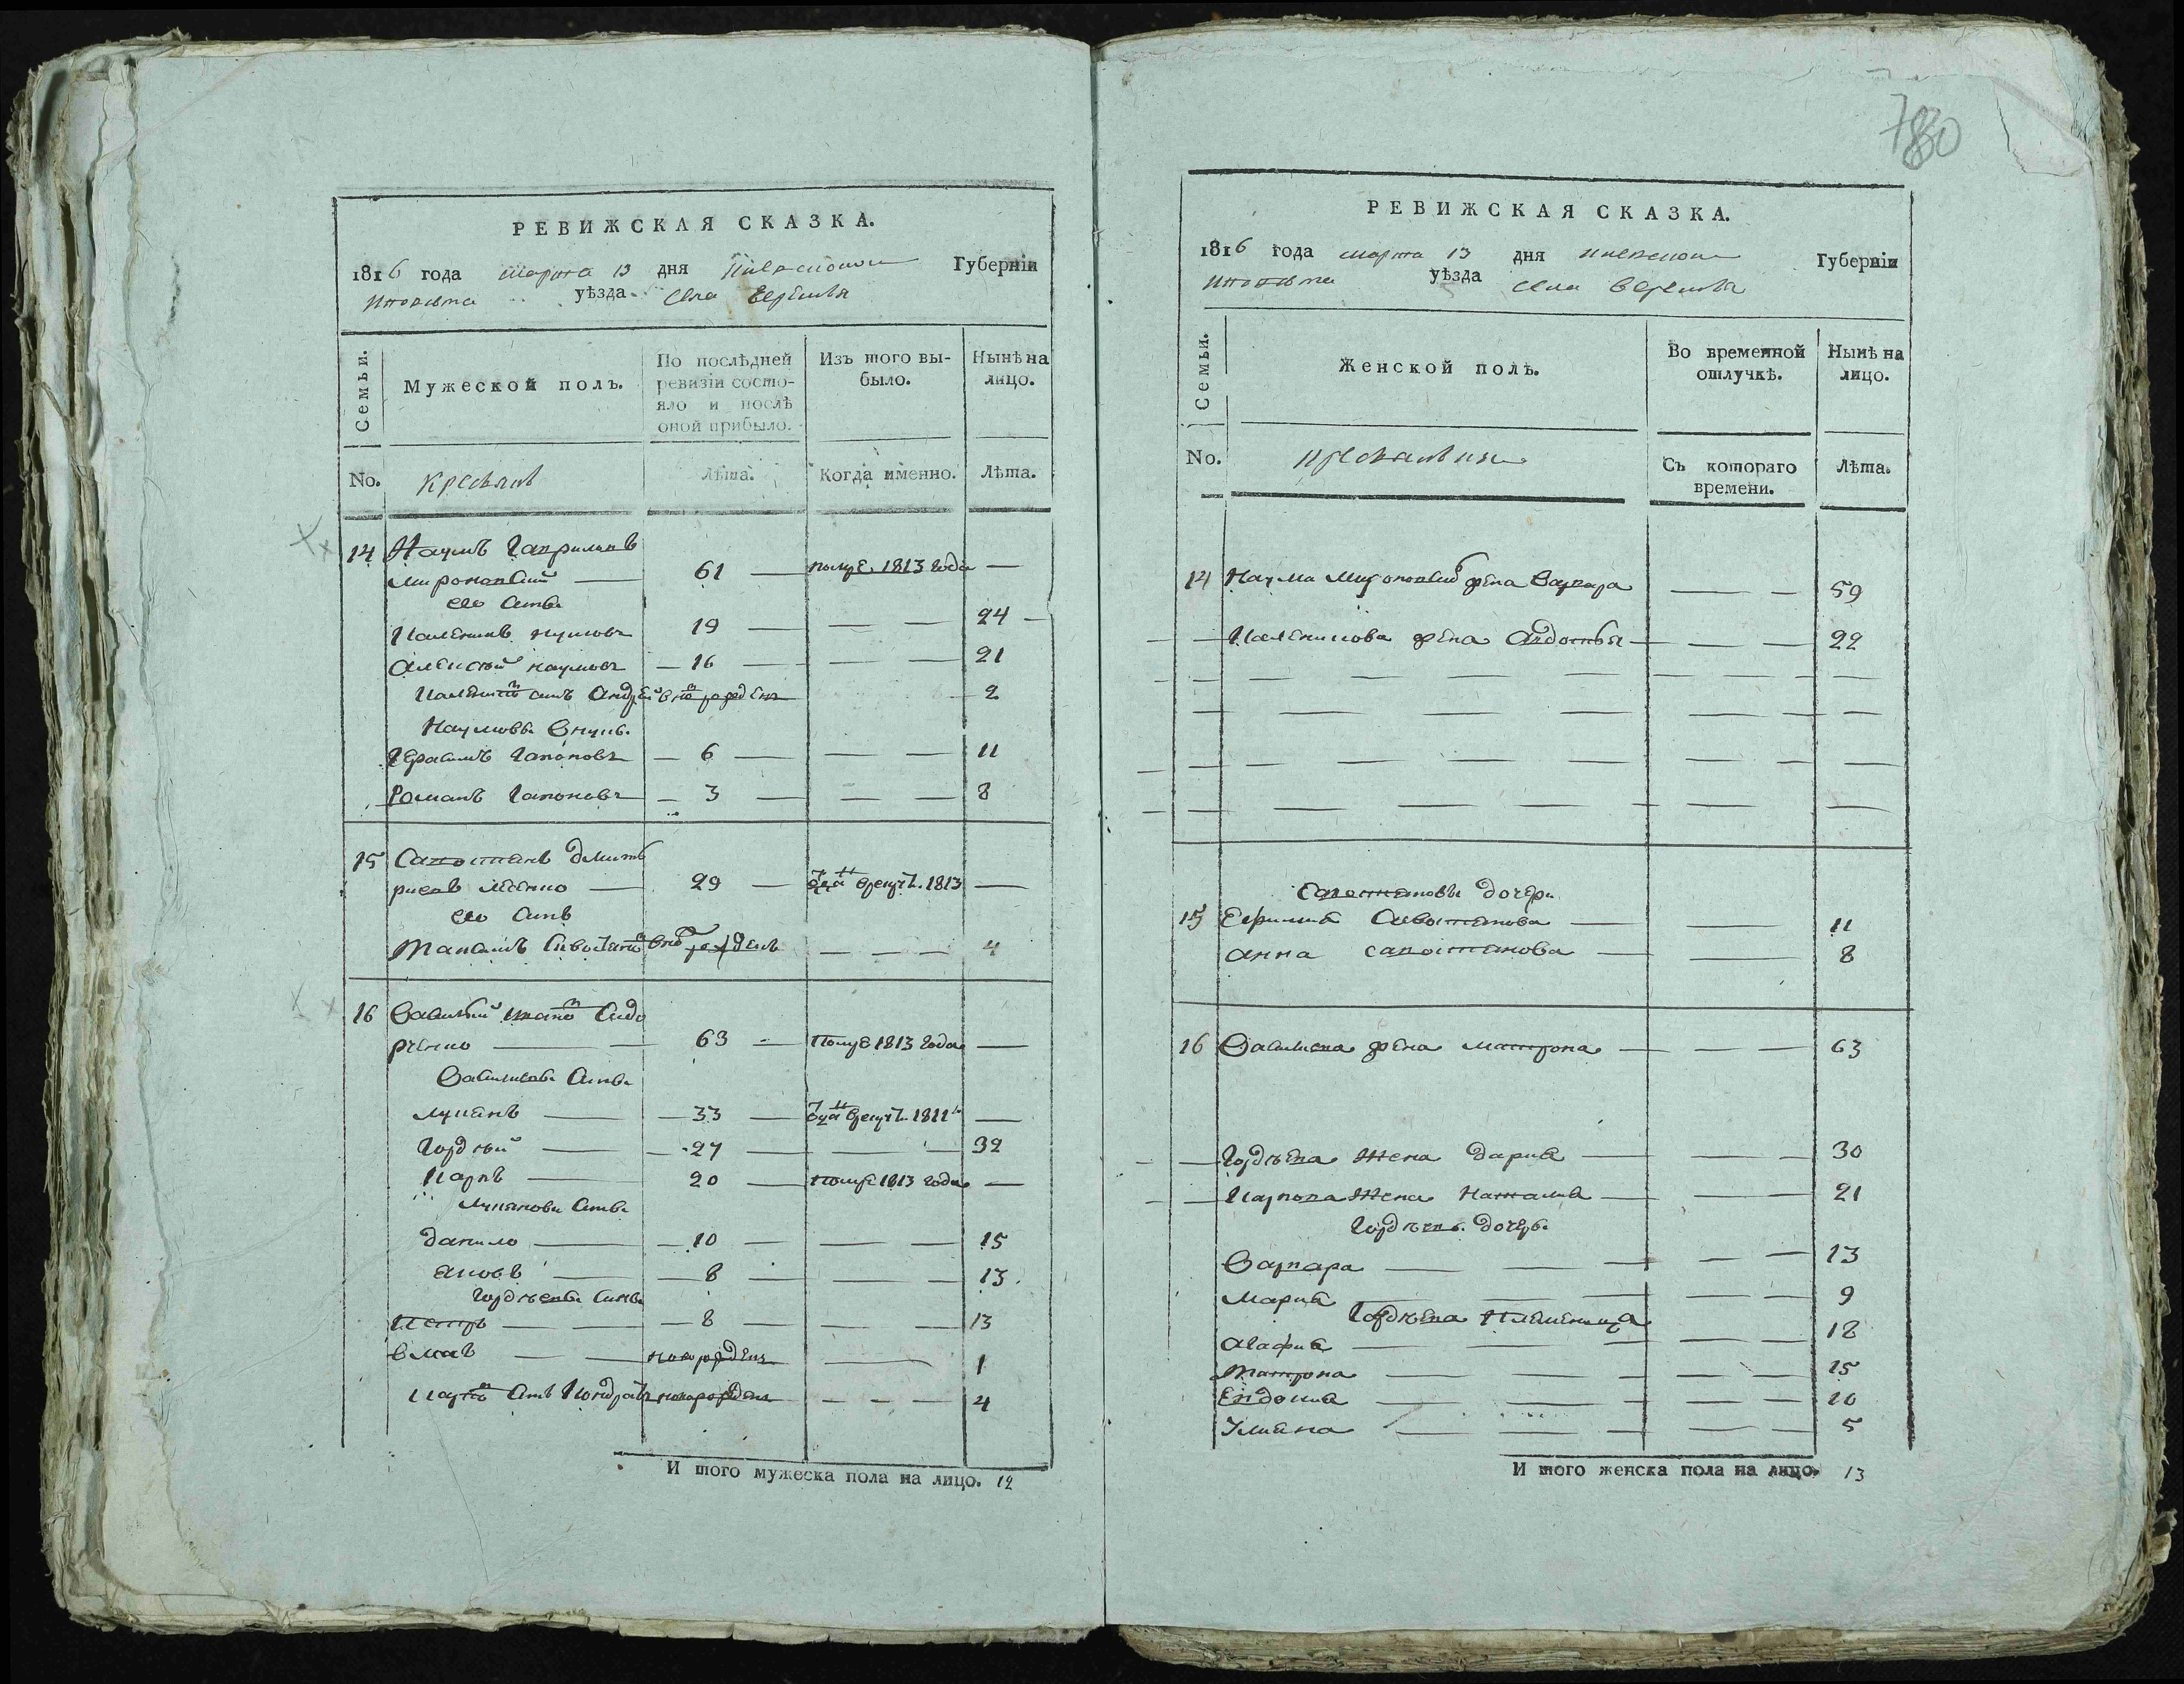 РЕВИЖСКАЯ СКАЗКА.
1816 года марта 13 дня Киевской Губерніи
уѣзда села
Семьи.
Мужеской полъ.
По послѣдней ревизіи состояло и послѣ оной прибыло.
Изъ того выбыло.
Нынѣ на лицо.
No. Крестьянъ Лѣта. Когда именно. Лѣта.
14 Наумъ Гавриловъ
Мироновскій — 61 — помре 1813 года —
его сынъ
Каленикъ Наумовъ 19 — — — 24
Алексѣй Наумовъ — 16 — — — 21
Калениковъ сынъ Андрей вновь рожденъ 2
Наумовы внуки
Герасимъ Гапоновъ — 6 — — — 11
Романъ Гапоновъ — 3 — — — 8
15 Савостіянъ Дмит
ріевъ — 29 — отданъ в рекруты 1813 —
его сынъ
сынъ вновь рожденъ — — — 4
16 Василій Сидо
ренко — 63 — помре 1813 года —
Васильевы сыны
Лукіянъ — 33 — отданъ в рекруты 1811 —
Гордѣй — 27 — — — 32
Карпъ — 20 — помре 1813 года —
Лукіяновы сыны
Данило — 10 — — — 15
Яковъ — 8 — — — 13
Гордѣевы сыны
Петръ — 8 — — — 13
новорожденъ — 1
Карповъ сынъ Кондратъ новорожденъ — — — 4
И того мужеска пола на лицо. 12
780
РЕВИЖСКАЯ СКАЗКА.
1816 года марта 13 дня Киевской Губерніи
уѣзда села
Семьи.
Женской полъ.
Во временной отлучкѣ.
Нынѣ на лицо.
No. Съ котораго времени. Лѣта.
14 Наума Мироновскаго жена Варвара — — 59
Каленикова жена Авдотья — — 22
Савостіяновы дочери
15 Ефимія Савостіянова — — 11
Анна Савостіянова — — 8
16 Васильева жена Матрона — — 63
Гордѣева жена Дарія — — 30
Карпова жена Наталія — — 21
Гордѣевы дочери
Варвара — — 13
Марія — — 9
Гордѣева племеница
Агафія — — 18
Матрона — — 15
Евдокія — — 10
Уліяна — — 5
И того женска пола на лицо. 13